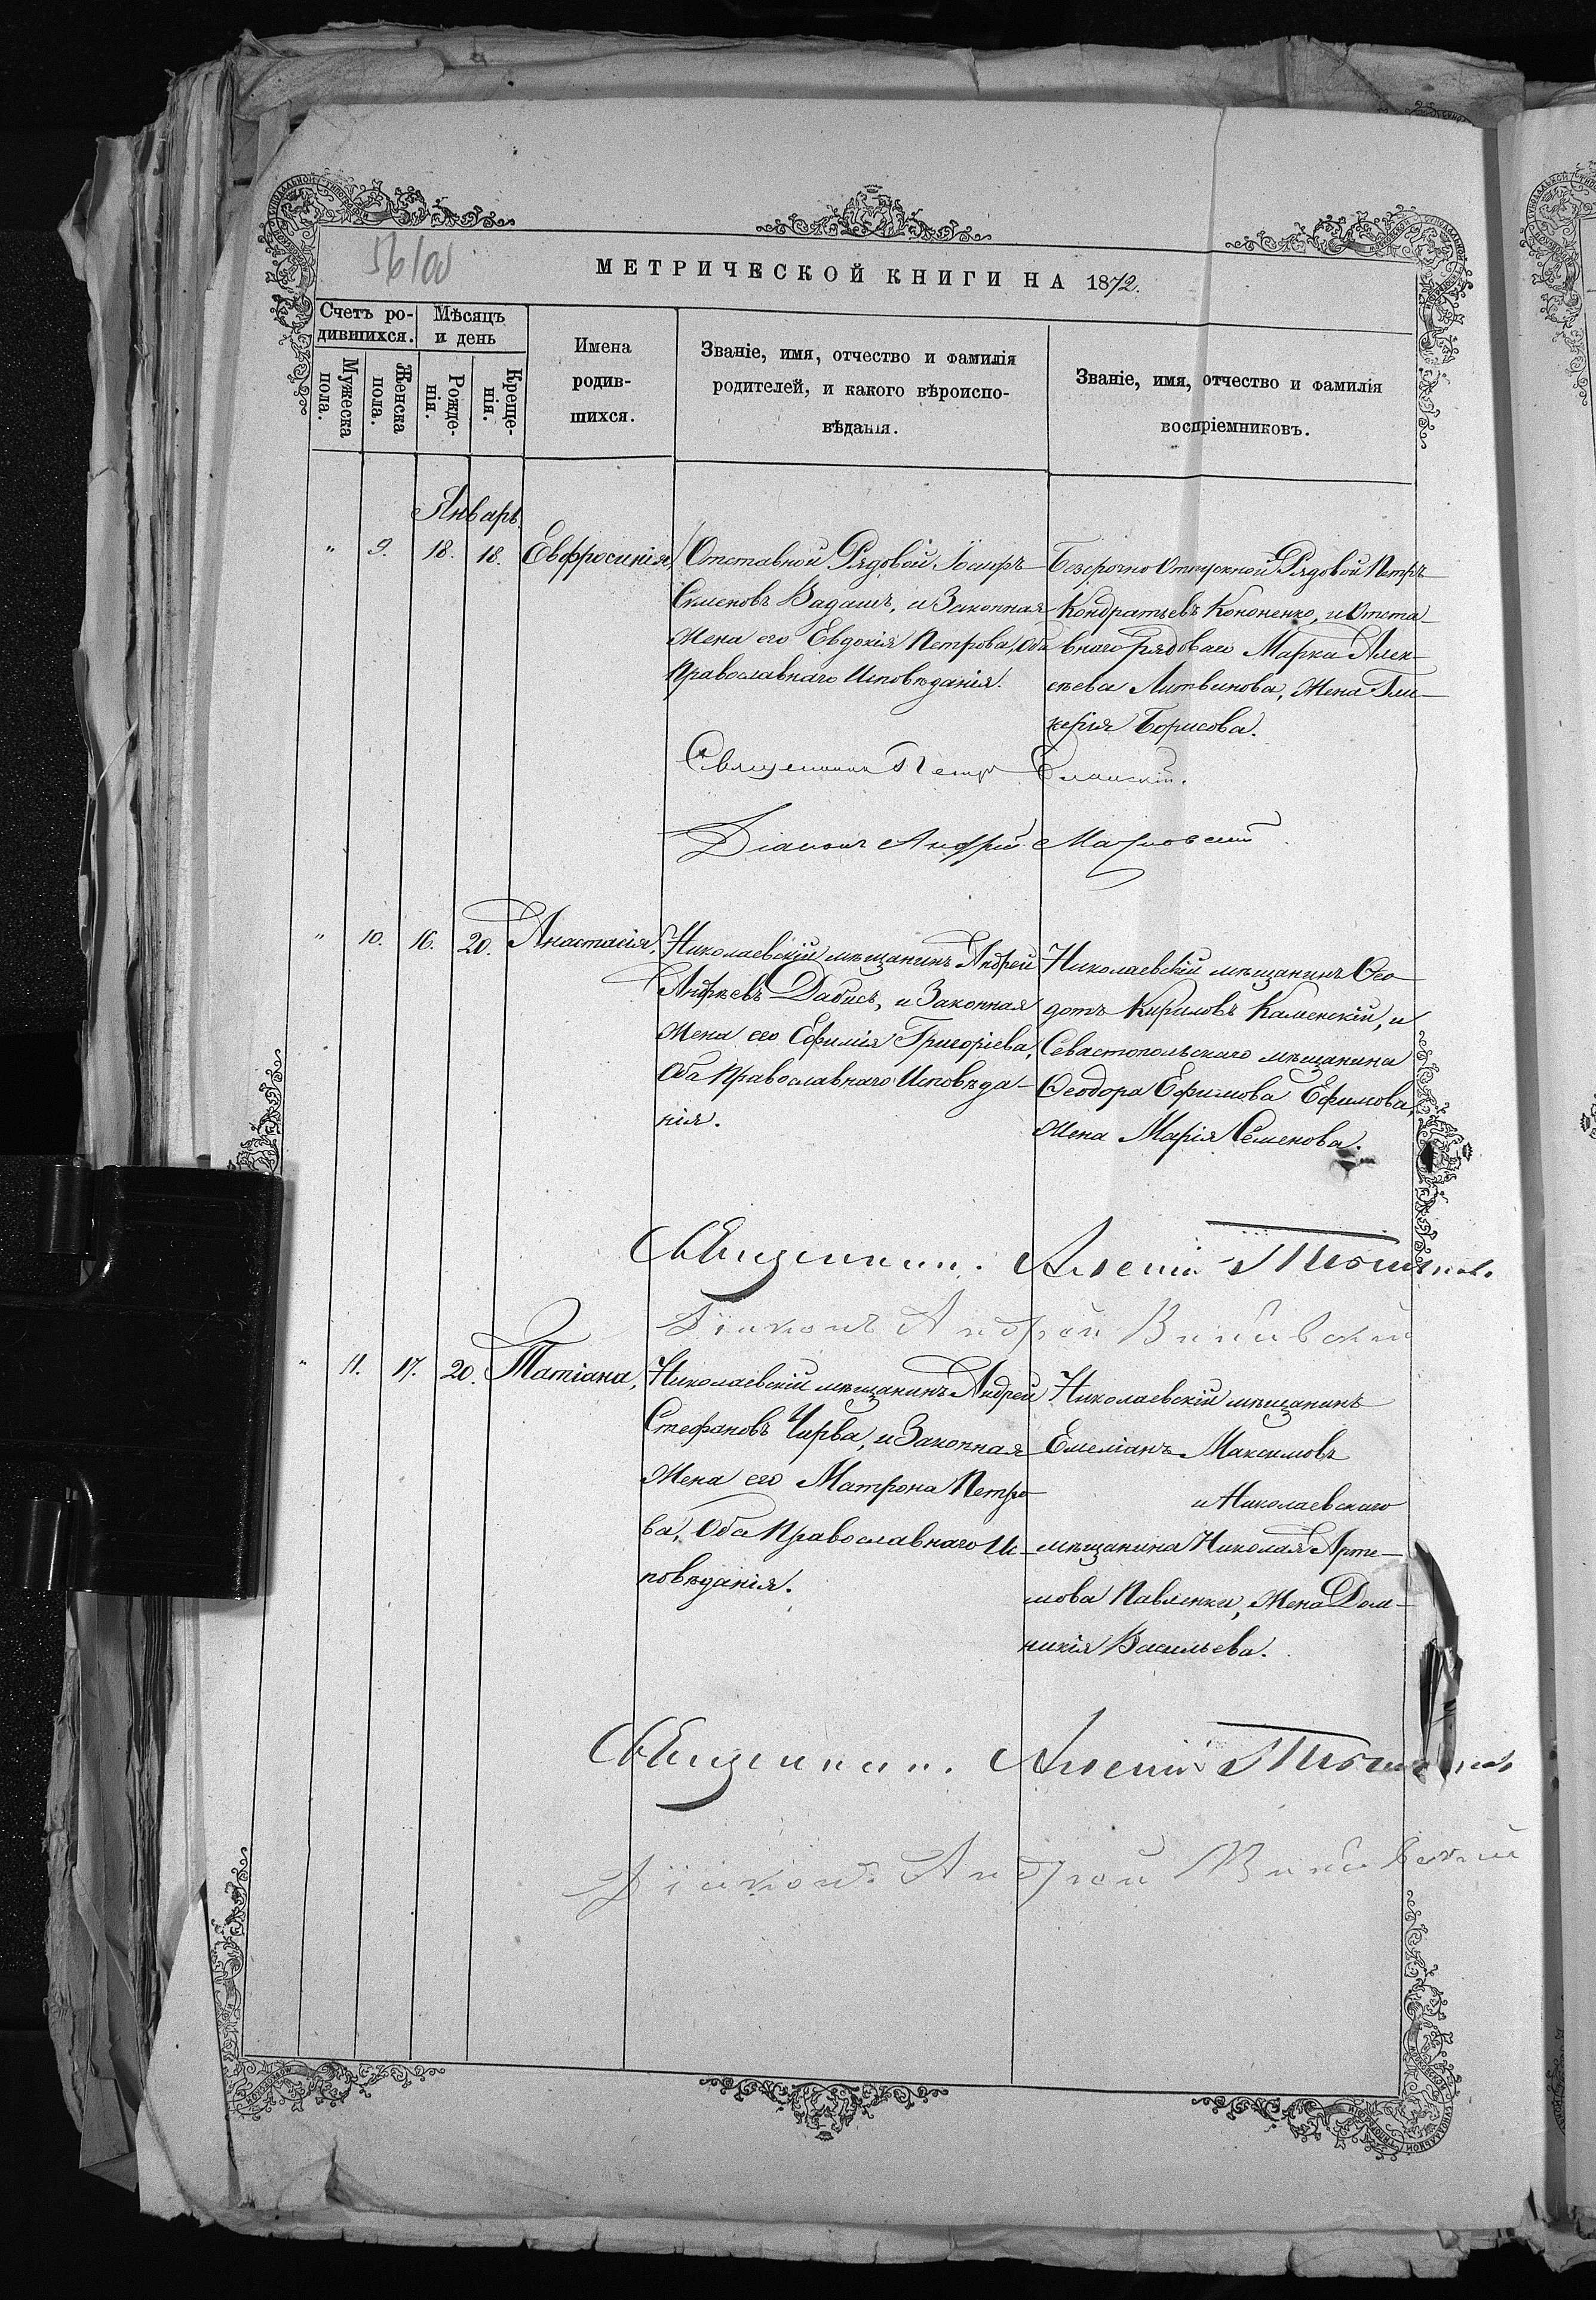 МЕТРИЧЕСКОЙ КНИГИ НА 1872.
Счетъ ро-
дившихся.
Мѣсяцъ
и день
Мужеска
пола.
Женска
пола.
Рожде-
нія.
Креще-
нія.
Имена
родив-
шихся.
Званіе, имя, отчество и фамилія
родителей, и какого вѣроиспо-
вѣданія.
Званіе, имя, отчество и фамилія
воспріемниковъ.
Январь.
" 9. 18. 18. Евфросинія
Отставной Рядовой Іосифъ
Семеновъ Вадашъ, и Законная
Жена его Евдокія Петрова, Оба
Православнаго Исповѣданія.
Безсрочно Отпускной Рядовой Петръ
Кондратьевъ Кононенко, и Отста-
внаго Рядоваго Марка Алек-
сѣева Литвинова, Жена Гли-
керія Борисова.
Священникъ Петръ
Діаконъ Андрей
" 10. 16. 20. Анастасія,
Николаевскій мѣщанинъ Андрей
Андреевъ Дабисъ, и Законная
Жена его Ефимія Григоріева,
Оба Православнаго Исповѣда-
нія.
Николаевскій мѣщанинъ Ѳео-
дотъ Кириловъ Каменскій, и
Севастопольскаго мѣщанина
Ѳеодора Ефимова Ефимова,
Жена Марія Семенова.
Священник. Алексій
Діаконъ Андрей
" 11. 17. 20. Татіана,
Николаевскій мѣщанинъ Андрей
Стефановъ Чирва, и Законная
Жена его Матрона Петро-
ва, Оба Православнаго Ис-
повѣданія.
Николаевскій мѣщанинъ
Емеліанъ Максимовъ
и Николаевскаго
мѣщанина Николая Арте-
мова Павленки, Жена Дом-
никія Васильева.
Священник. Алексій
Діаконъ Андрей